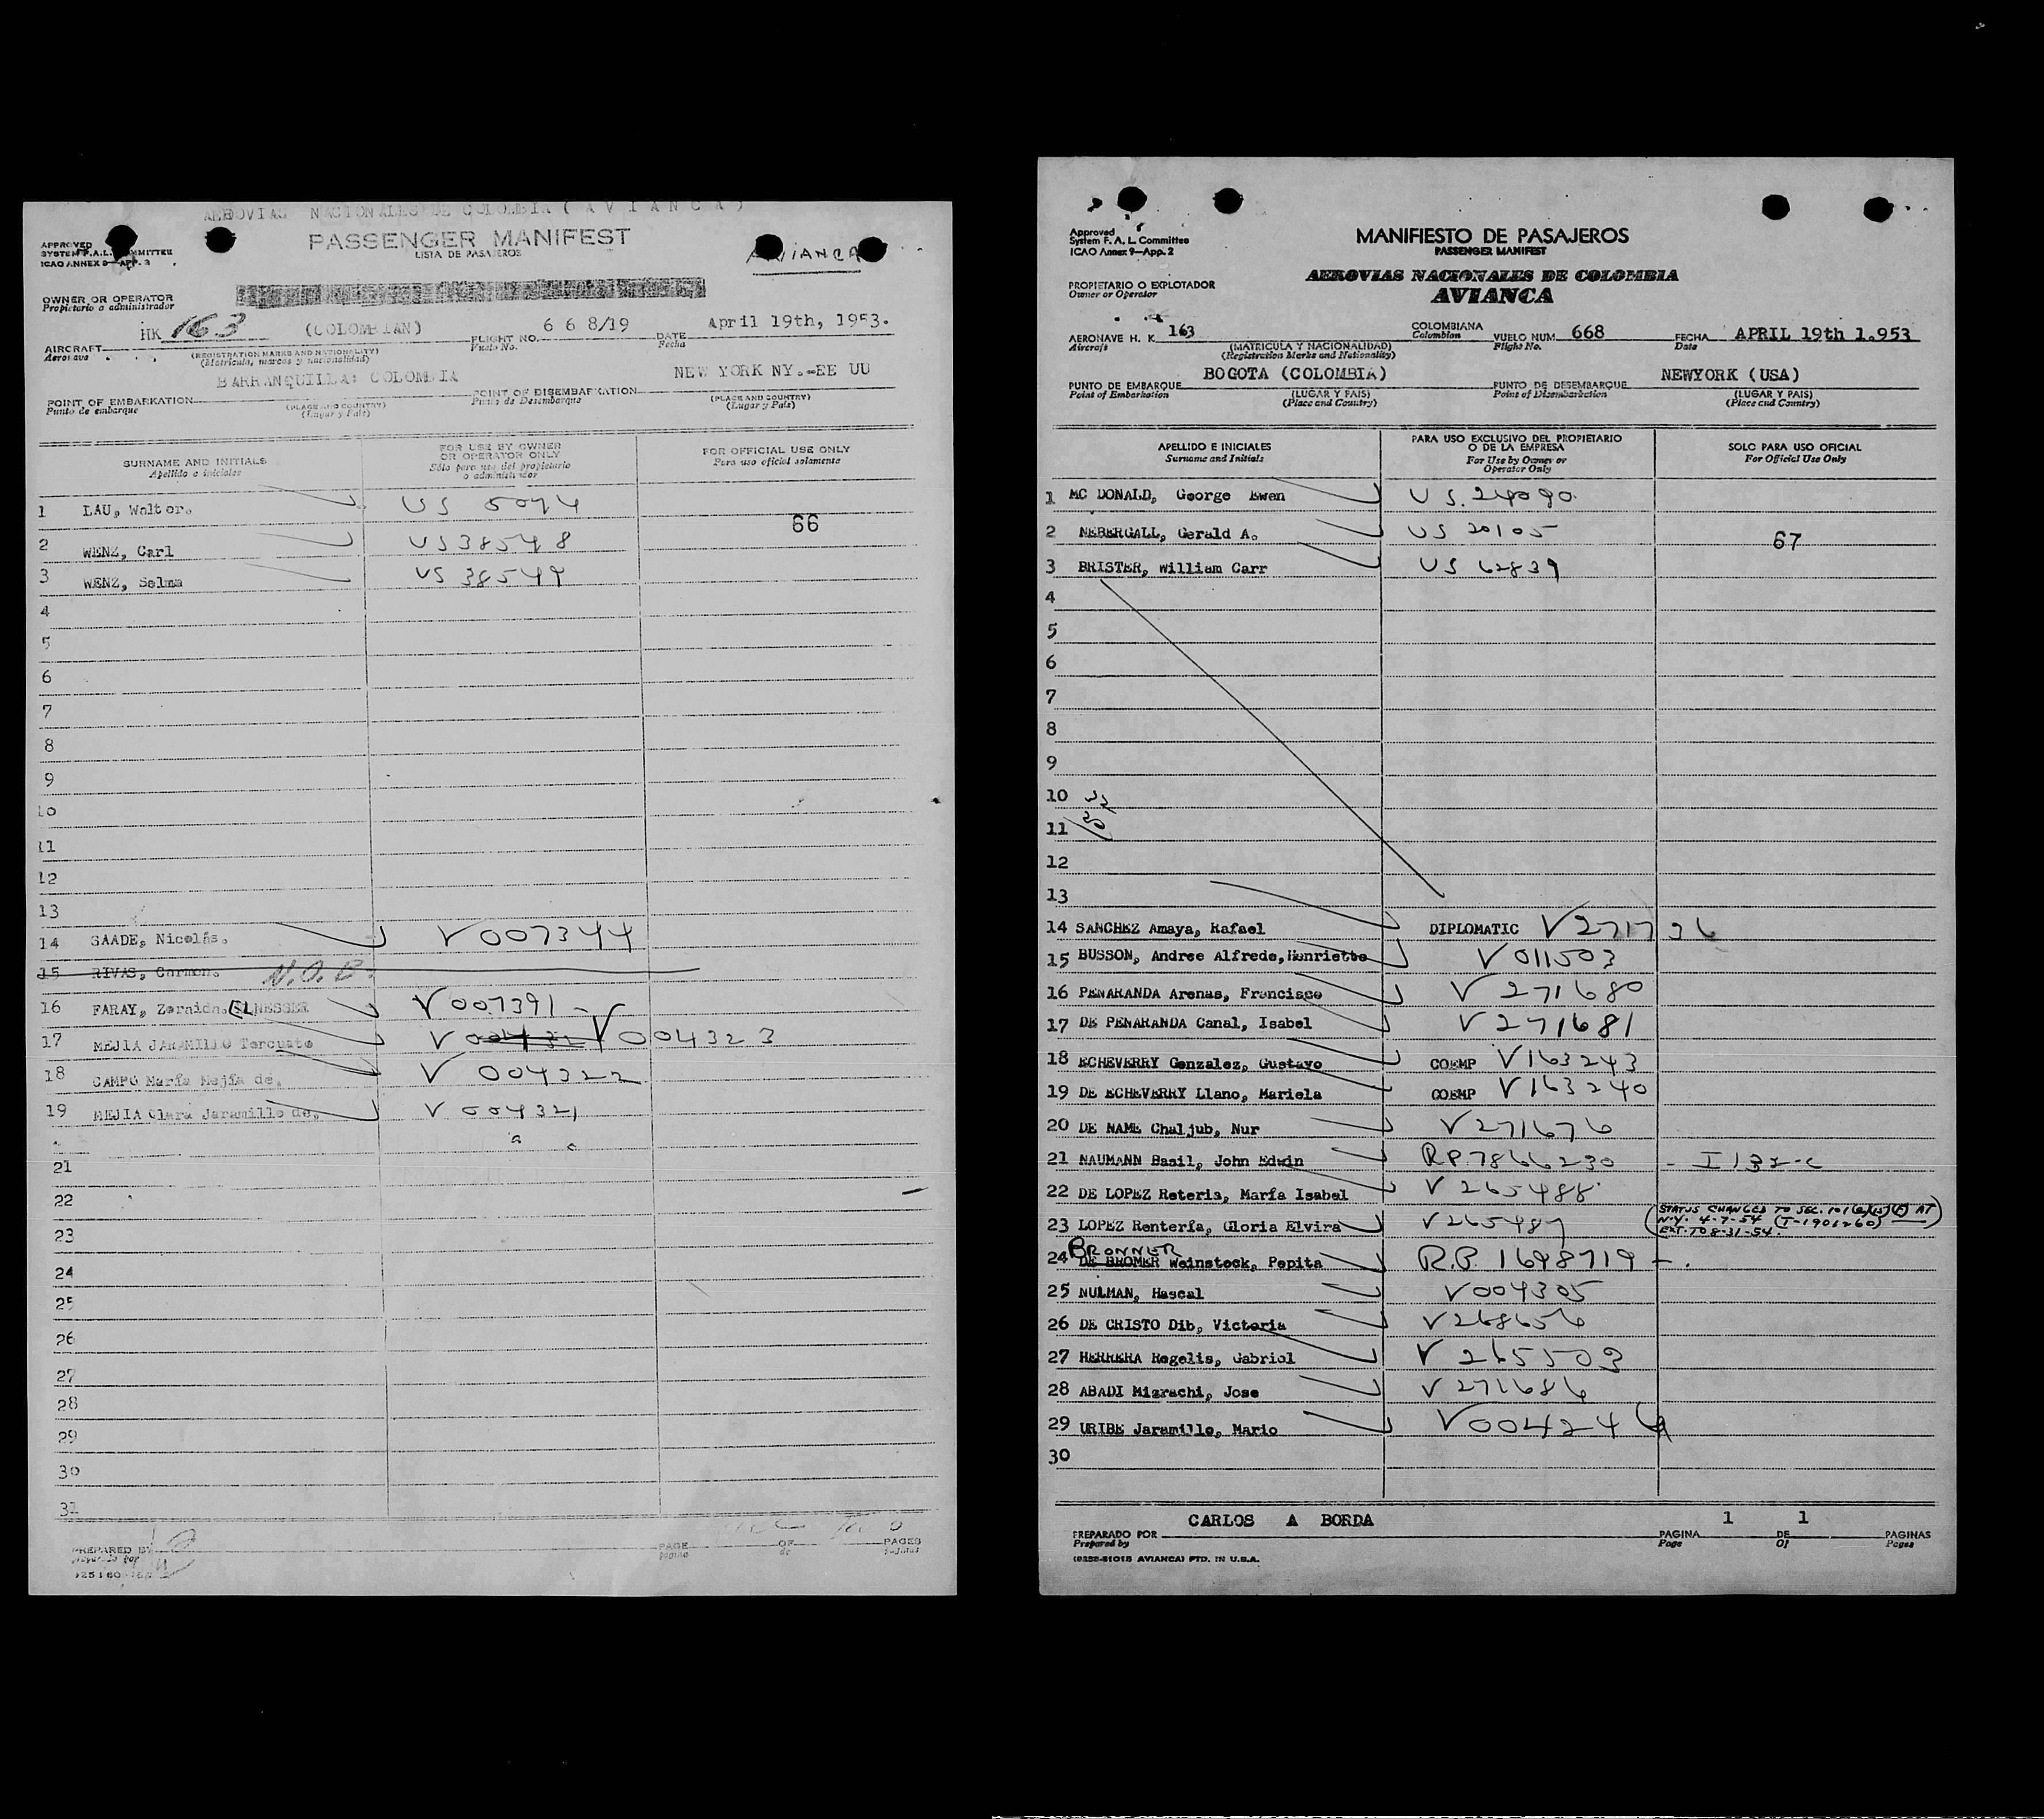 AEROVIAS NACIONALES DE COLOMBIA ( A V I A N C A )
PASSENGER MANIFEST
LISTA DE PASAJEROS
APPROVED
SYSTEM F.A.L. COMMITTEE
ICAO ANNEX 9—APP. 2
AVIANCA
OWNER OR OPERATOR
Propietario o administrador
HK 163 (COLOMBIAN) 6 6 8/19 April 19th, 1953.
AIRCRAFT FLIGHT NO. DATE
Aeronave (REGISTRATION MARKS AND NATIONALITY) Vuelo No. Fecha
(Matrícula, marcas y nacionalidad)
BARRANQUILLA: COLOMBIA NEW YORK NY.-EE UU
POINT OF EMBARKATION POINT OF DISEMBARKATION
Punto de embarque (PLACE AND COUNTRY) Punto de Desembarque (PLACE AND COUNTRY)
(Lugar y País) (Lugar y País)
SURNAME AND INITIALS
Apellido e iniciales
FOR USE BY OWNER
OR OPERATOR ONLY
Sólo para uso del propietario
o administrador
FOR OFFICIAL USE ONLY
Para uso oficial solamente
1 LAU, Walter. US 5074
66
2 WENZ, Carl US 38548
3 WENZ, Selma US 38549
4
5
6
7
8
9
10
11
12
13
14 SAADE, Nicolás. V007344
15 RIVAS, Carmen. N.O.B.
16 FARAY, Zoraida. ELNESSER V007391 -
17 MEJIA JARAMILLO Torcuato V 00432 V004323
18 CAMPO María Mejía de. V 004322
19 MEJIA Clara Jaramillo de. V 004321
21
22
23
24
25
26
27
28
29
30
31
PREPARED BY PAGE OF PAGES
Página de
MANIFIESTO DE PASAJEROS
PASSENGER MANIFEST
Approved
System F. A. L. Committee
ICAO Annex 9—App. 2
AEROVIAS NACIONALES DE COLOMBIA
AVIANCA
PROPIETARIO O EXPLOTADOR
Owner or Operator
AERONAVE H. K. 163 COLOMBIANA VUELO NUM. 668 FECHA APRIL 19th 1.953
Aircraft Colombian Flight No. Date
(MATRICULA Y NACIONALIDAD)
(Registration Marks and Nationality)
BOGOTA (COLOMBIA) NEWYORK (USA)
PUNTO DE EMBARQUE (LUGAR Y PAIS) PUNTO DE DESEMBARQUE (LUGAR Y PAIS)
Point of Embarkation (Place and Country) Point of Disembarkation (Place and Country)
APELLIDO E INICIALES
Surname and Initials
PARA USO EXCLUSIVO DEL PROPIETARIO
O DE LA EMPRESA
For Use by Owner or
Operator Only
SOLO PARA USO OFICIAL
For Official Use Only
1 MC DONALD, George Ewen US. 24090.
2 NEBERGALL, Gerald A. US 20105
67
3 BRISTER, William Carr US 62839
4
5
6
7
8
9
10
11
12
13
14 SANCHEZ Amaya, Rafael DIPLOMATIC V271736
15 BUSSON, Andree Alfrede, Henriette V 011503
16 PENARANDA Arenas, Francisco V 271680
17 DE PENARANDA Canal, Isabel V271681
18 ECHEVERRY Gonzalez, Gustavo COEMP V163243
19 DE ECHEVERRY Llano, Mariela COEMP V163240
20 DE NAME Chaljub, Nur V271676
21 NAUMANN Basil, John Edwin R.P.7866230 - I132-C
22 DE LOPEZ Reteria, María Isabel V 265488
23 LOPEZ Rentería, Gloria Elvira V265487
(STATUS CHANGED TO SEC. 101(a)(15)(F) AT
N.Y. 4-7-54 (T-1901260)
EXT. TO 8-31-54.)
BRONNER
24 DE BROMER Weinstock, Pepita R.P. 1698719 -.
25 NULMAN, Hascal V004305
26 DE CRISTO Dib, Victoria V268656
27 HERRERA Rogelis, Gabriel V 265503
28 ABADI Mizrachi, Jose V 271686
29 URIBE Jaramillo, Mario V004244
30
CARLOS A BORDA 1 1
PREPARADO POR PAGINA DE PAGINAS
Prepared by Page Of Pages
(9255-51015 AVIANCA) PTD. IN U.S.A.